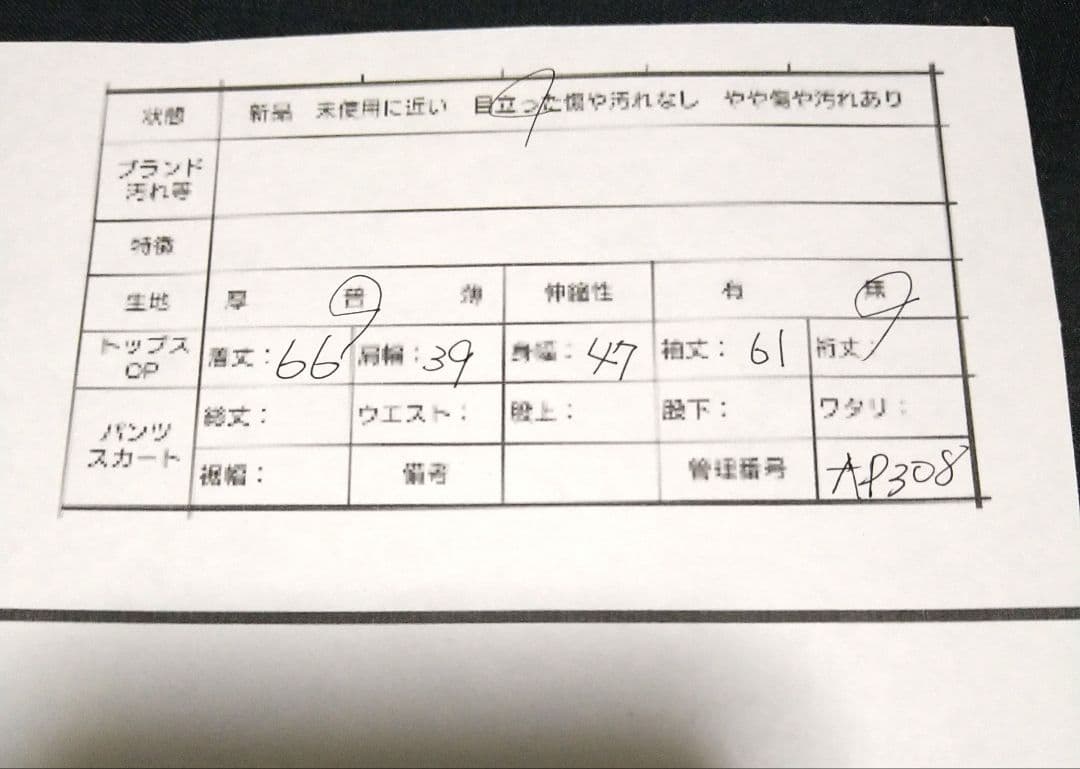 状態 新品 未使用に近い 目立った傷や汚れなし やや傷や汚れあり
ブランド
汚れ等
特徴
生地 厚 普 薄 伸縮性 有 無
トップス
OP
着丈：66 肩幅：39 身幅：47 袖丈：61 裄丈：
パンツ
スカート
総丈： ウエスト： 股上： 股下： ワタリ：
裾幅： 備考 管理番号 AP308